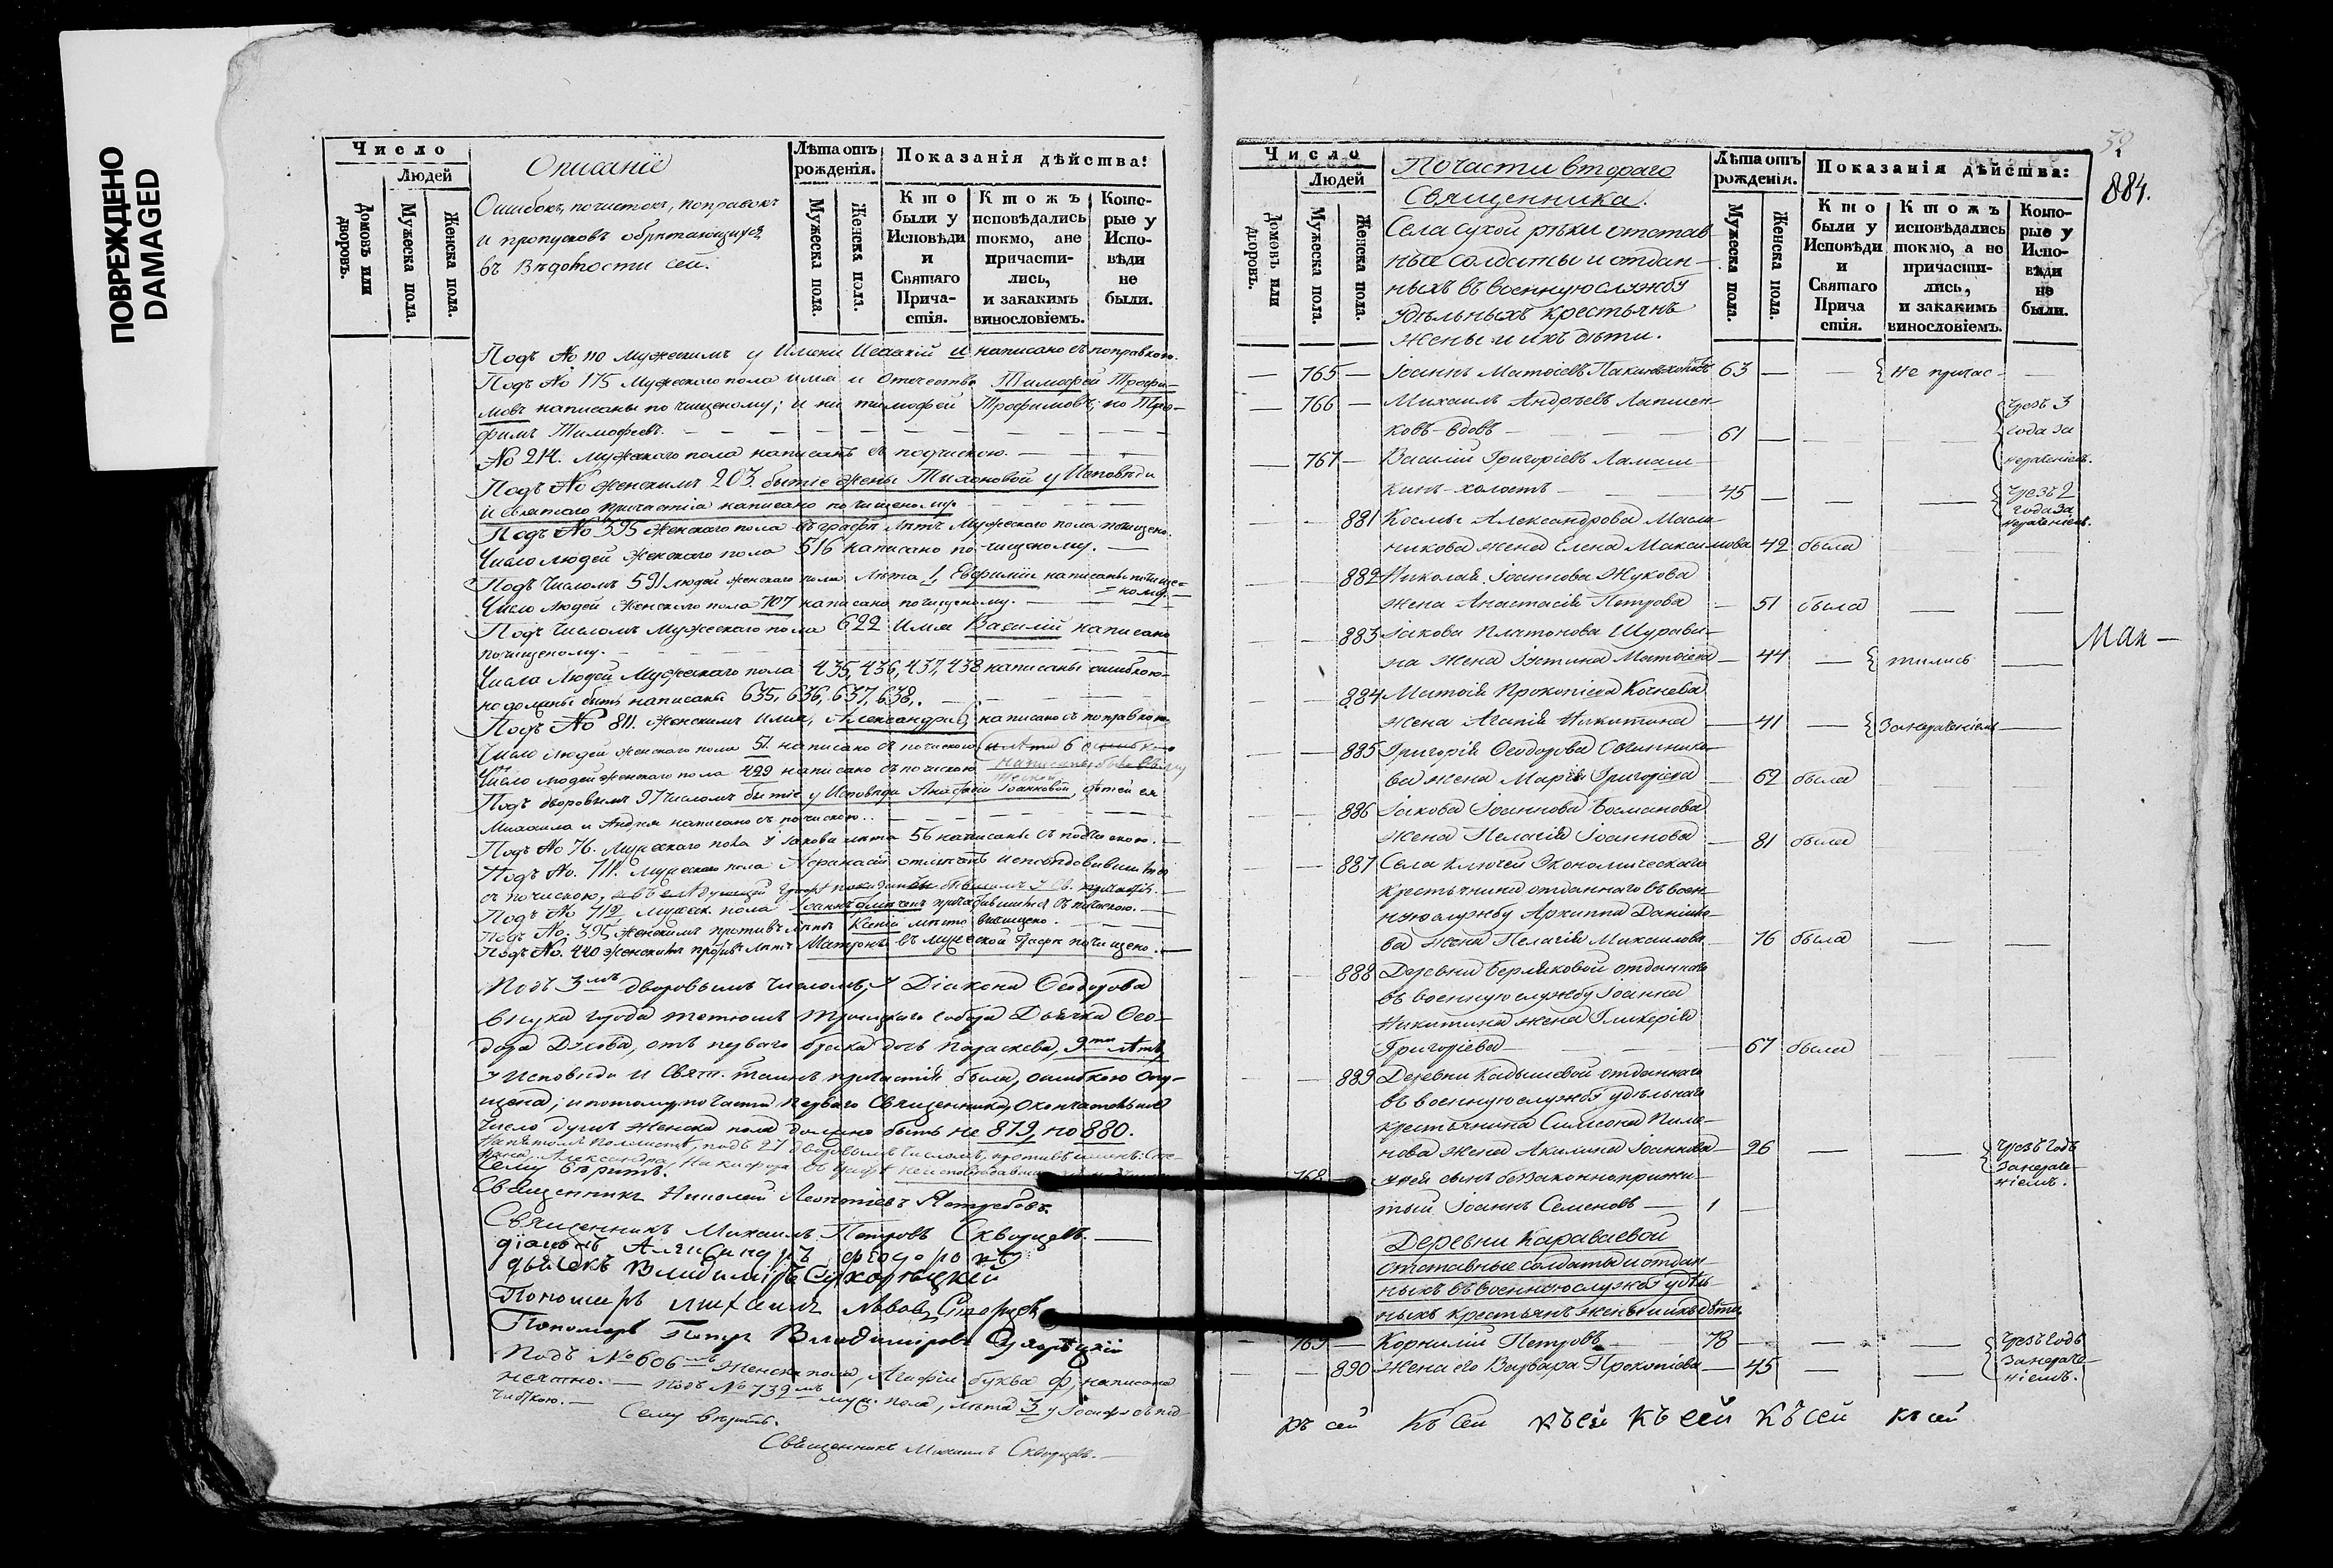 ПОВРЕЖДЕНО
DAMAGED
Число
Людей
Домовъ или дворовъ.
Мужеска пола.
Женска пола.
Описаніе
Ошибокъ, почистокъ, поправокъ
и пропусковъ обрѣтающихся
въ Вѣдомости сей.
Лѣта отъ рожденія.
Мужеска пола.
Женска пола.
Показанія дѣйства:
Кто были у Исповѣди и Святаго Прича- стія.
Ктожъ исповѣдались токмо, ане причасти- лись, и закакимъ винословіемъ.
Кото- рые у Испо- вѣди не были.
Подъ № 110 мужескимъ у Имени Исаакій и написано съ поправкою.
Подъ № 175 Мужескаго пола имя и отечество Тимофей Трофи-
мовъ написаны по чищеному; и ни тимофей Трофимовъ; но Тро-
фимъ Тимофеевъ.
№ 214. мужескаго пола написанъ съ подчискою.
Подъ № женскимъ 203 бытіе жены Тихоновой у Исповѣди
и святаго причастія написано почищеному.
Подъ № 395 женскаго пола въ графѣ лѣтъ Мужескаго пола почищено.
Число людей женскаго пола 516 написано по чищеному.
Подъ Числомъ 591 людей женскаго пола лѣта 1, Евфиміи написаны почище-
ному.
Число людей Женскаго пола 707 написано почищеному.
Подъ Числомъ Мужескаго пола 622 Имя Василій написано
почищеному.
Числа Людей Мужескаго пола 435, 436, 437, 438 написаны ошибкою
но должны быть написаны 635, 636, 637, 638.
Подъ № 811. женскимъ имя, Александра, написано съ поправкою
Число людей женскаго пола 51. написано съ почискою
Число людей женскаго пола 429 написано съ почискою
Подъ дворовымъ 97 числомъ бытіе у Исповѣди Іоанновой, дѣтей ея
Михаила и Андрея написано съ почискою.
Подъ № 76. Мужескаго пола у Іакова лѣта 56 написаны съ подчискою.
Подъ № 711. мужескаго пола Афанасій
съ почискою,
Подъ № 712 мужеск. пола
Подъ № 395 женскимъ противъ лѣтъ Ксеніи мѣсто вычищено.
Подъ № 440 женскимъ противъ лѣтъ Матроны въ мужеской графѣ почищено.
Подъ 3мъ дворовымъ числомъ, у Діакона Феодорова
внука города тетюшъ троицкаго собора Дьячка Фео-
дора Дѣлова, отъ перваго брака дочь Параскева, 9ти лѣтъ
у исповѣди и Свят. таинъ причастія была, ошибкою опу-
щена; и потому по части перваго Священника, окончательное
число душъ женска пола должно быть не 879, но 880.
Сему вѣрить.
Священникъ Николай Леонтіевъ Ястребовъ.
Священникъ Михаилъ Петровъ Скворцовъ.
діаконъ Александръ Феодоровъ
дьячекъ Владиміръ Сухорѣцкій
Пономарь михаилъ львовъ
Пономарь Петръ Владиміровъ Сухорѣцкій
Подъ № 606мъ Женска пола, Агафіи буква ф, написана
нечетно. — Подъ № 739мъ муж. пола, лѣта 3 у Іосифа съ под-
чисткою. — Сему вѣрить.
Священникъ Михаилъ Скворцовъ.
Число
Людей
Домовъ или дворовъ.
Мужеска пола.
Женска пола.
По части втораго
Священника.
Села сухой рѣки отстав
ные солдаты и отдан-
ныхъ въ военную службу
удѣльныхъ крестьянъ
жены и ихъ дѣти.
Лѣта отъ рожденія.
Мужеска пола.
Женска пола.
Показанія дѣйства:
Кто были у Исповѣди и Святаго Прича стія.
Ктожъ исповѣдались токмо, а не причасти- лись, и закакимъ винословіемъ.
Кото- рые у Испо- вѣди не были.
884.
765 Іоаннъ Матвіевъ 63 не причас
766 Михаилъ Андреевъ Лаптен- чрезъ 3
ковъ - вдовъ 61 года за
нераченіемъ.
767 Василій Григоріевъ Ламаш-
кинъ - холостъ 45 чрезъ 2
года за
нераченіемъ.
881 Космы Александрова Масле-
никова жена Елена Максимова 42 была
882 Николая Іоаннова Жукова
жена Анастасія Петрова 51 была
883 Іакова Платонова Шурави-
на жена Іустина Матвіева 44 тились
Мак-
884 Матвія Прокопіева Кочнева
жена Агапія Никитина 41 Занераченіемъ
885 Григорія Феодорова Овчиннико-
ва жена Марія Григоріева 62 была
886 Іакова Іоаннова Босманова
жена Пелагія Іоаннова 81 была
887 Села Ключей Экономическаго
крестьянина отданнаго въ воен-
ную службу Архиппа Данило-
ва жена Пелагія Михаилова 76 была
888 Деревни Берляковой отданнаго
въ военную службу Іоанна
Никитина жена Гликерія
Григоріева 67 была
889 Деревни Кадышевой отданнаго
въ военную службу удѣльнаго
крестьянина Симеона Пиле-
нова жена Акилина Іоаннова 26 чрезъ годъ
занераче-
ніемъ.
768 у ней сынъ беззаконноприжи-
тый Іоаннъ Семеновъ 1
Деревни Караваевой
отставные солдаты и отдан-
ныхъ въ военную службу удѣль-
ныхъ крестьянъ жены и ихъ дѣти
769 Корнилій Петровъ 78 чрезъ годъ
890 Жена его Варвара Прокопіева 45 занераче-
ніемъ.
къ сей къ сей къ сей къ сей къ сей къ сей